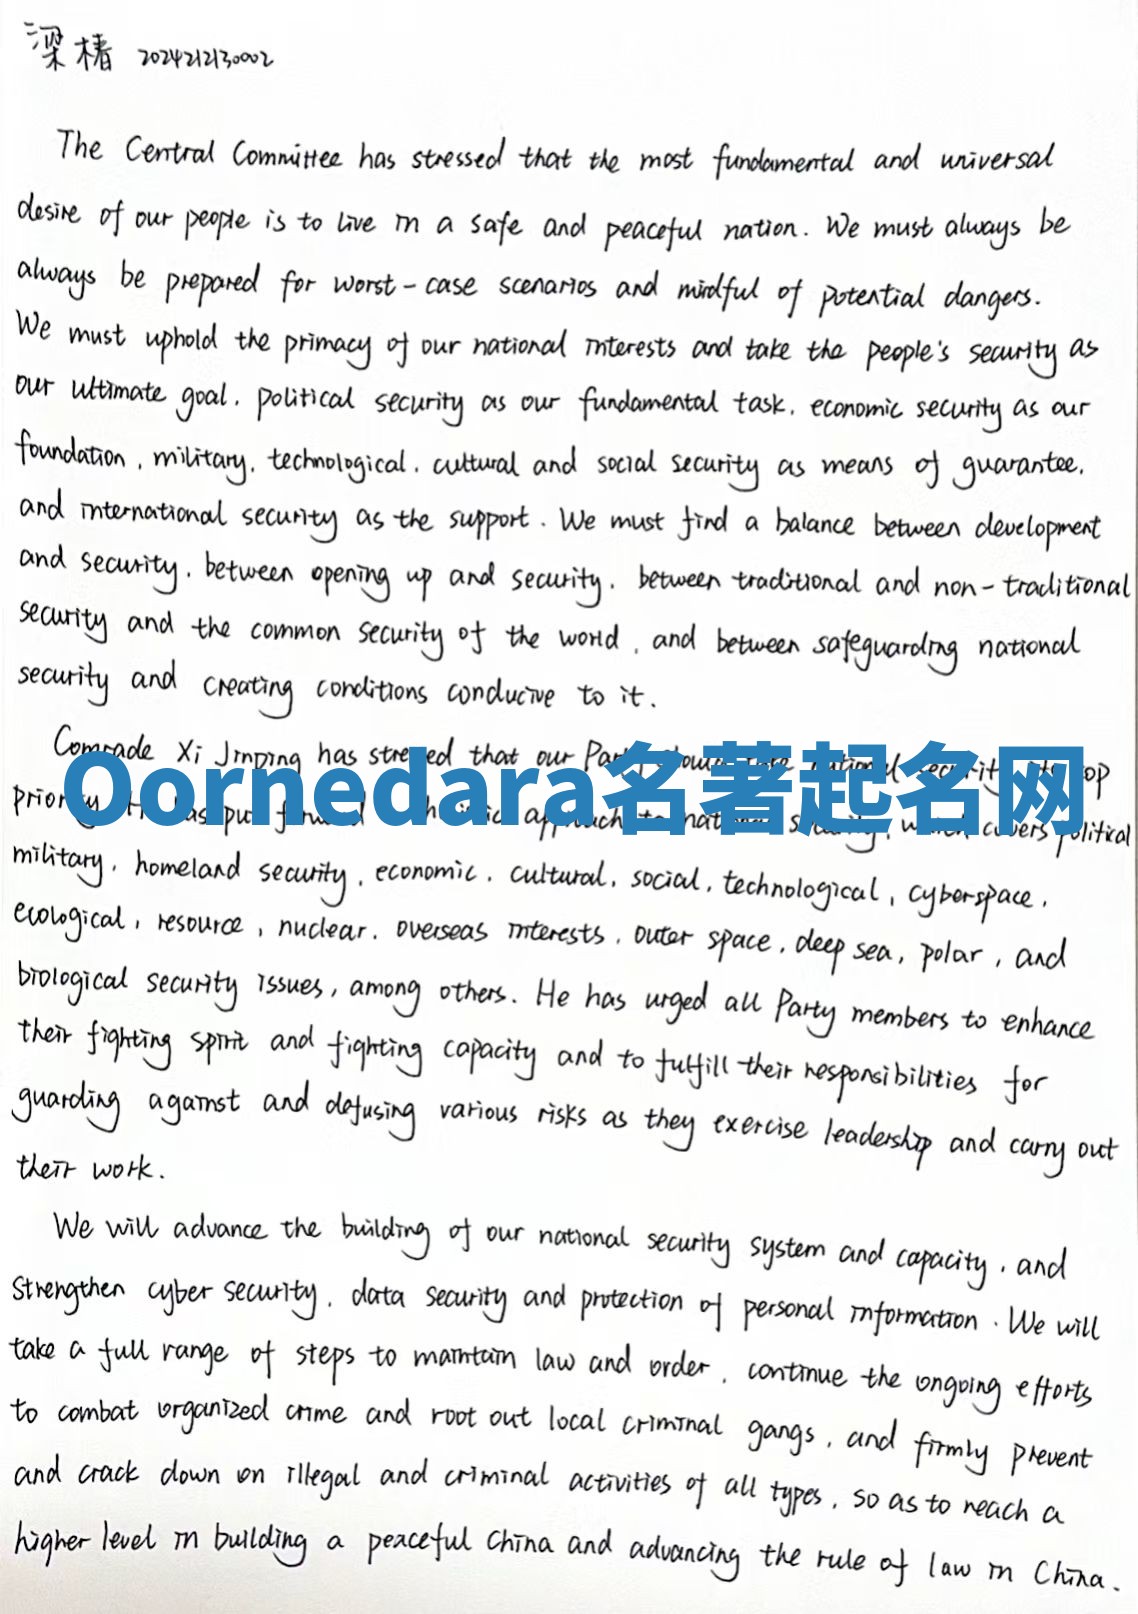 梁椿 2024212130002
The Central Committee has stressed that the most fundamental and universal
desire of our people is to live in a safe and peaceful nation. We must always be
always be prepared for worst-case scenarios and mindful of potential dangers.
We must uphold the primacy of our national interests and take the people's security as
our ultimate goal, political security as our fundamental task, economic security as our
foundation, military, technological, cultural and social security as means of guarantee,
and international security as the support. We must find a balance between development
and security, between opening up and security, between traditional and non-traditional
security and the common security of the world, and between safeguarding national
security and creating conditions conducive to it.
Comrade Xi Jinping has stressed that our Party national security top
Oornedara名著起名网
priority put forward approach to national security, which covers political
military, homeland security, economic, cultural, social, technological, cyberspace,
ecological, resource, nuclear, overseas interests, outer space, deep sea, polar, and
biological security issues, among others. He has urged all Party members to enhance
their fighting spirit and fighting capacity and to fulfill their responsibilities for
guarding against and defusing various risks as they exercise leadership and carry out
their work.
We will advance the building of our national security system and capacity, and
strengthen cyber security, data security and protection of personal information. We will
take a full range of steps to maintain law and order, continue the ongoing efforts
to combat organized crime and root out local criminal gangs, and firmly prevent
and crack down on illegal and criminal activities of all types, so as to reach a
higher level in building a peaceful China and advancing the rule of law in China.